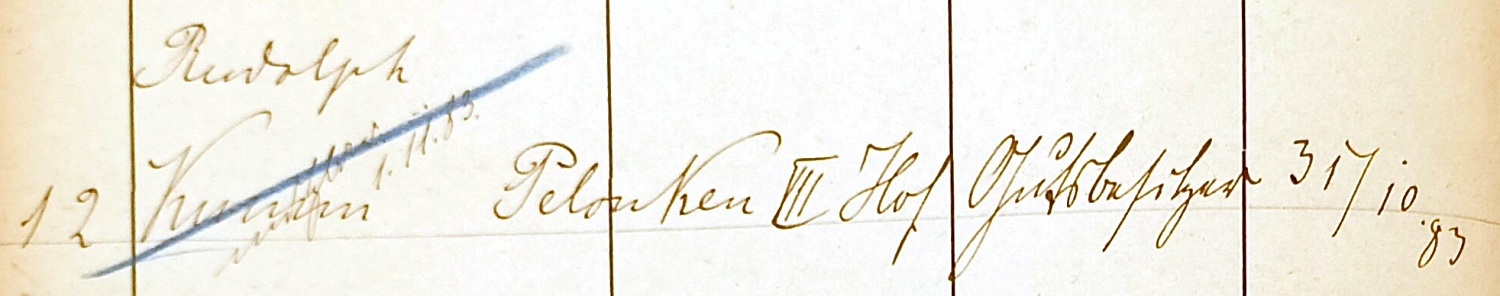 Rudolph
12 Pelonken III Hof Gutsbesitzer 31/10.83
1.11.83.